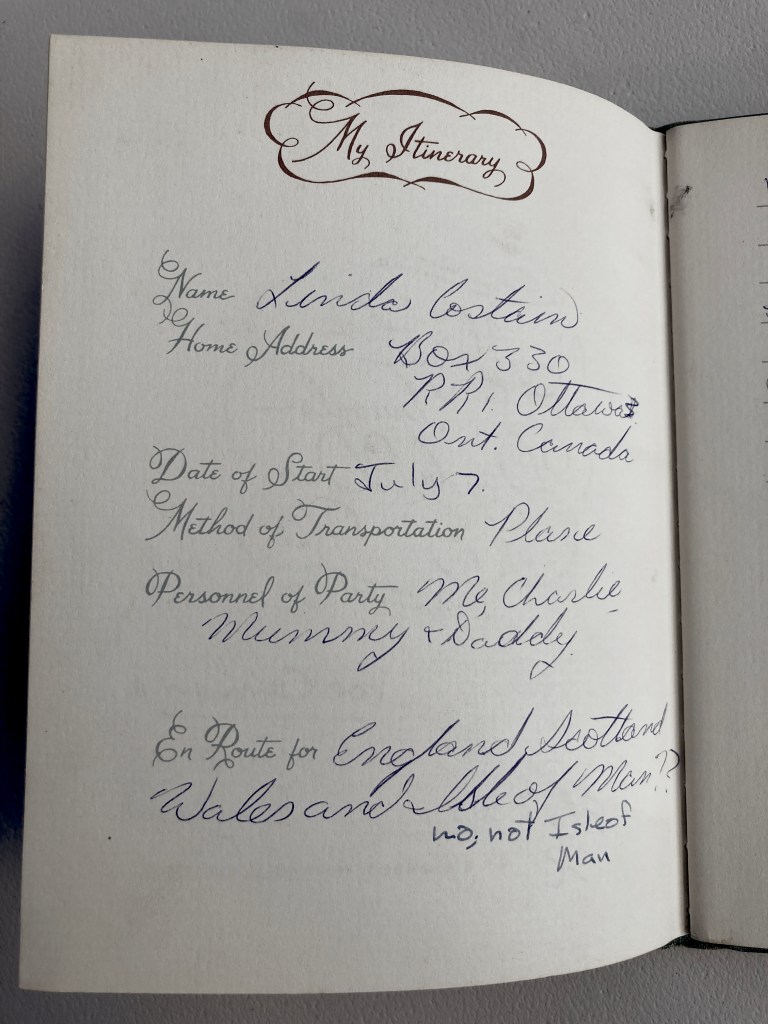 My Itinerary
Name Linda Costain
Home Address Box 330
RR1. Ottawa
Ont. Canada
Date of Start July 7.
Method of Transportation Plane
Personnel of Party Me, Charlie
Mummy + Daddy.
En Route for England, Scotland
Wales and Isle of Man??
no, not Isle of
Man